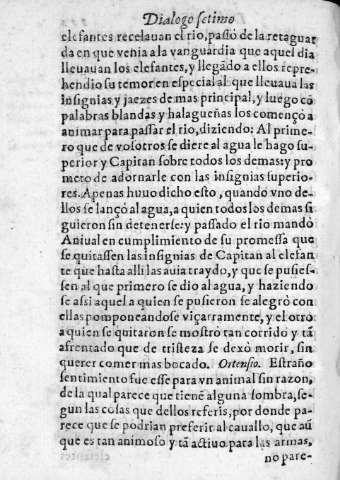 Dialogo setimo
elefantes recelauan el rio, passò de la retaguar
da en que venia a la vanguardia que aquel dia
lleuauan los elefantes, y llegãdo a ellos repre-
hendio su temor en especial al que lleuaua las
insignias y jaezes de mas principal, y luego cõ
palabras blandas y halagueñas los començò a
animar para passar el rio, diziendo; Al prime-
ro que de vosotros se diere al agua le hago su-
perior y Capitan sobre todos los demas: y pro
meto de adornarle con las insignias superio-
res. Apenas huuo dicho esto, quando vno de-
llos se lançó al agua, a quien todos los demas si
guieron sin detenerse: y passado el rio mandò
Aniual en cumplimiento de su promessa que
se quitassen las insignias de Capitan al elefan
te que hasta alli las auia traydo, y que se pusies-
sen al que primero se dio al agua, y haziendo
se assi aquel a quien se pusieron se alegrò con
ellas pomponeandose viçarramente, y el otro
a quien se quitaron se mostrò tan corrido y tã
afrentado que de tristeza se dexò morir, sin
querer comer mas bocado. Ortensio. Estraño
sentimiento fue esse para vn animal sin razon,
de la qual parece que tienē alguna sombra, se-
gun las cosas que dellos referis, por donde pa-
rece que se podrian preferir al cauallo, que aũ
que es tan animoso y tã actiuo para las armas,
no pare-